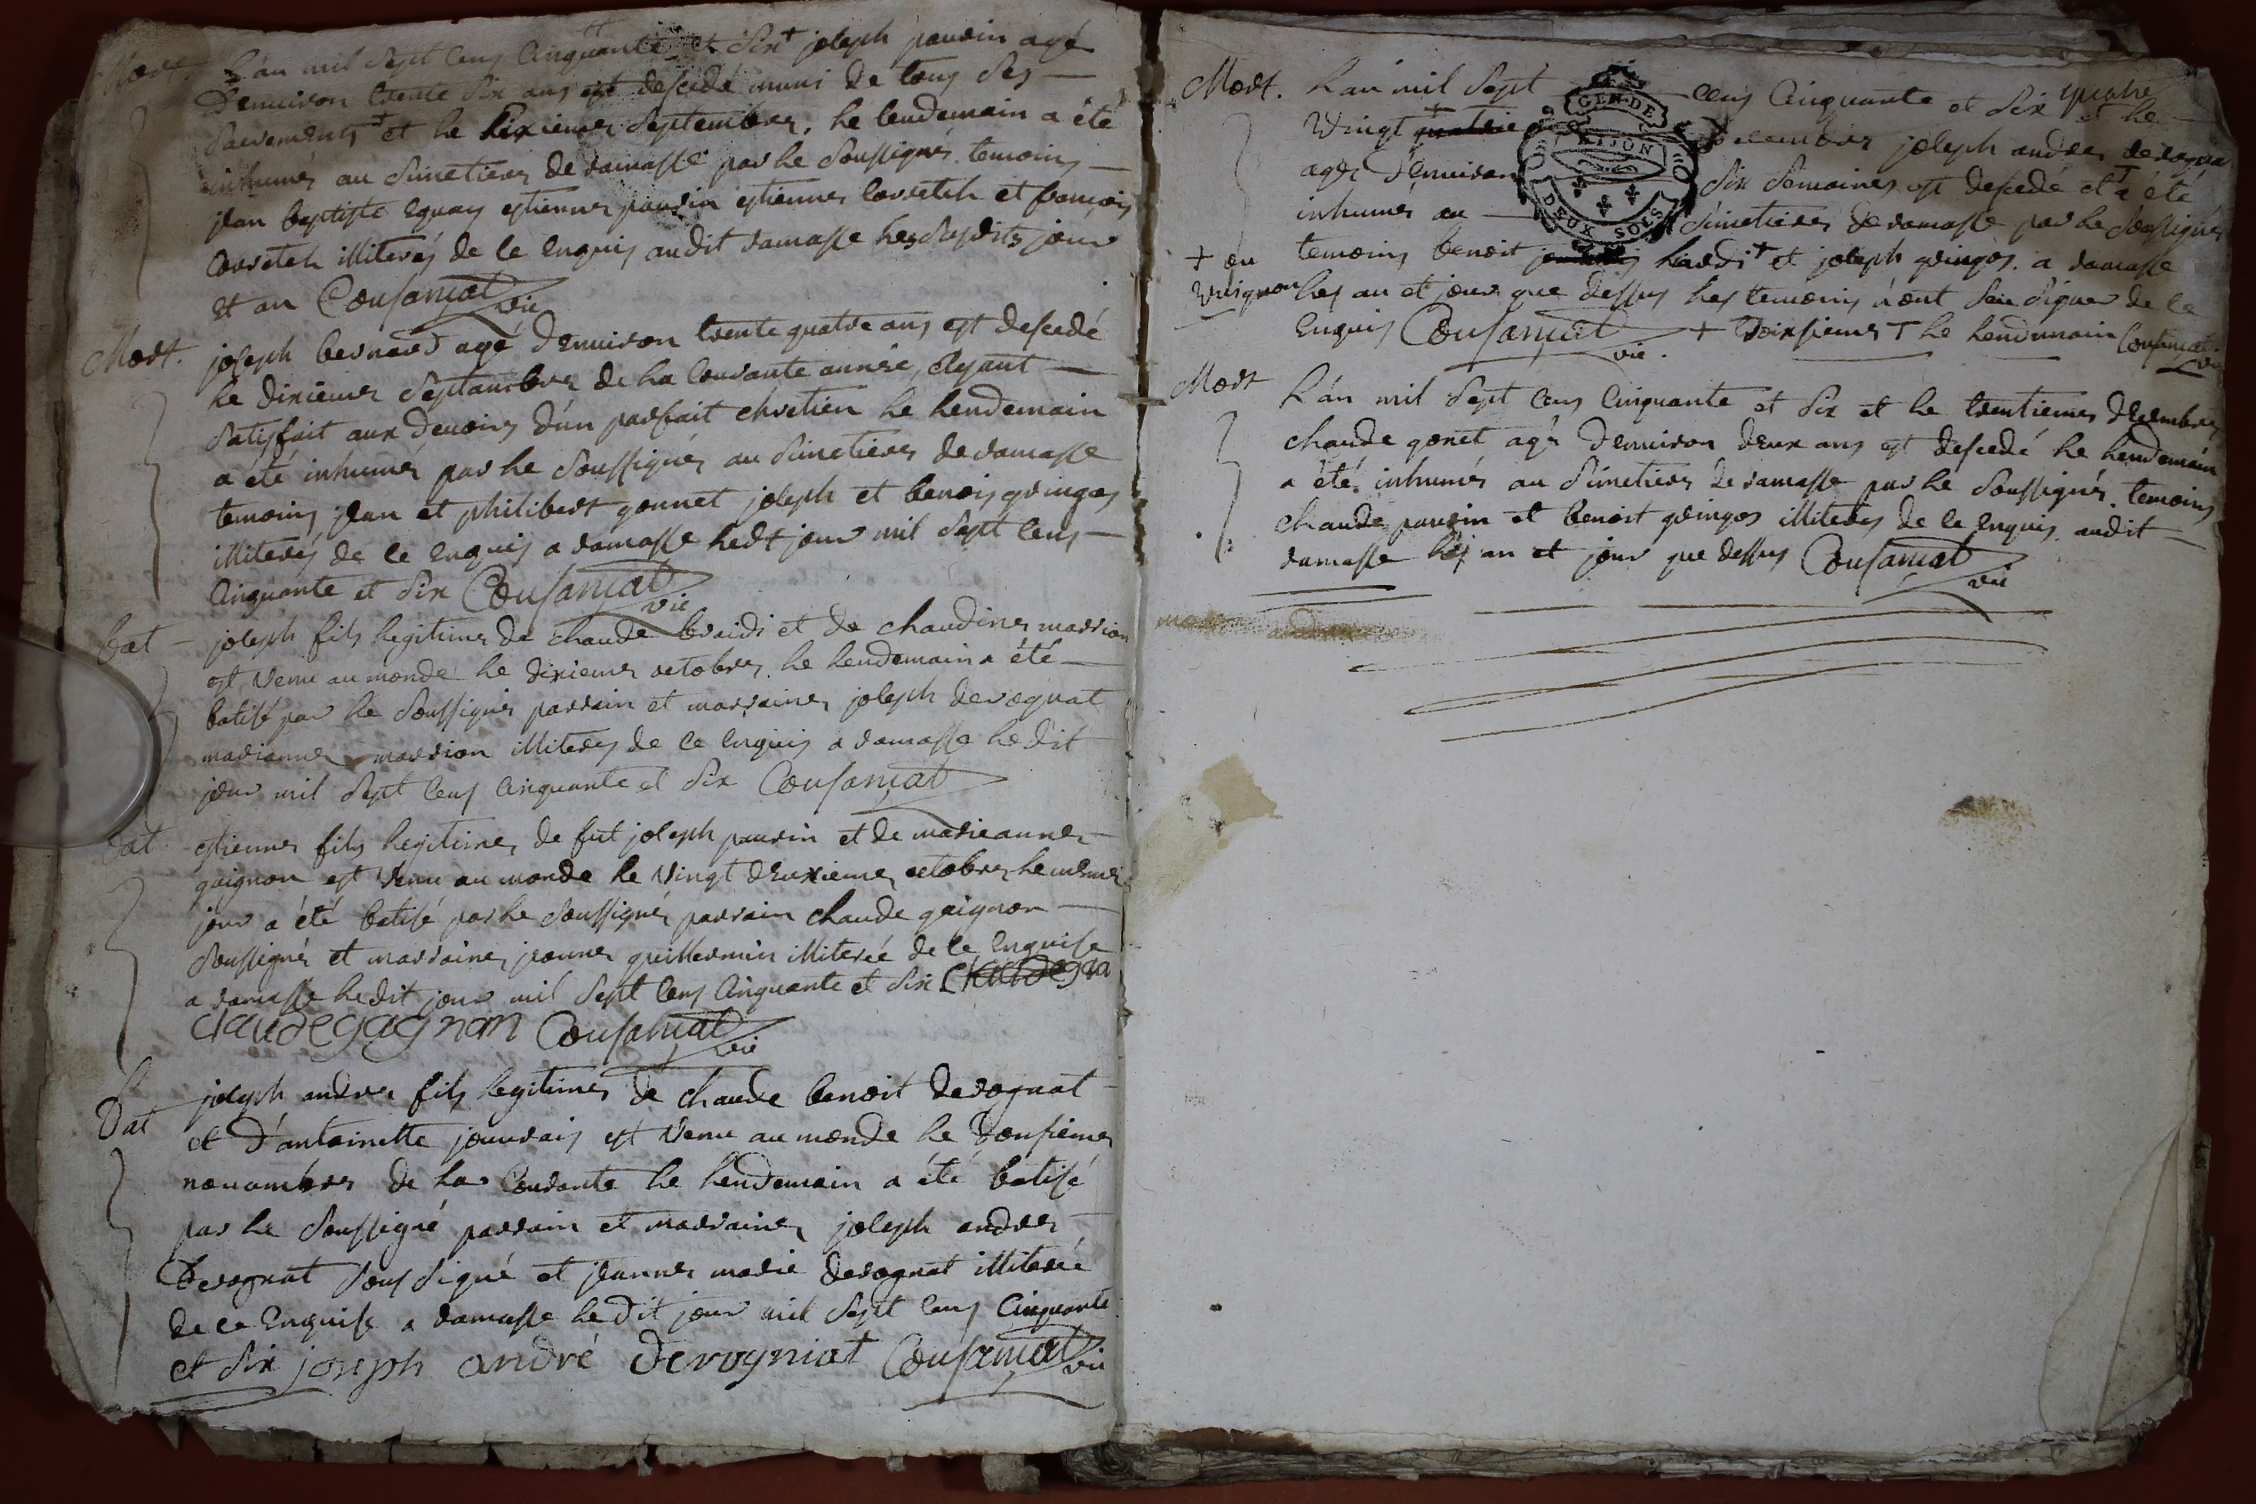 Mort. L'an mil sept cens cinquante et six + joseph pauvin agé
d'enuiron trente six ans est descedé muni de tous ses
sacrements + et he sixiemes septembres. he lendemain a été
inhumés au simetieres de ramasse par he soussignés temoins
jean baptiste eguay estiennes pauvin estiennes corretel et françois
corretel illiterés de ce enquis audit ramasse hes susdits jour
et an Cousançat vic
Mort. joseph bernard agé d'enuiron trente quatre ans est descedé
he dixiemes septambres de ha courante année, ayant
satisfait aux deuoirs d'un parfait chretien he hendemain
a été inhumés par he soussignés au simetieres de ramasse
temoins jean et philibert gonnet joseph et benois gringos
illiterés de ce enquis a ramasse hedt jour mil sept cens
cinquante et six Cousançat vic
bat joseph fils hegitimes de chaude braidi et de chaudines marrion
est venu au monde he dixiemes octobres. he hendemain a été
batisé par he soussignés parrain et marraines joseph derognat
mariannes marrion illiteres de ce enquis a ramasse he dit
jour mil sept cens cinquante et six Cousançat
bat estiennes fils hegitimes de fut joseph pauvin et de marieannes
gaignon est venu au monde he vingt deuxiemes octobres he memes
jour a été batisé par he soussignés parrain chaude gaignon
soussignés et marraines jeannes guillermin illiterée de ce enquise
a ramasse hedit jour mil sept cens cinquante et six
claude gagnon Cousançat vic
Bat joseph andres fils hegitimes de chaude benoit derognat
et d'antoinette jouurais est venu au monde he douzieme
nouambres de ha courante he hendemain a été batisé
par he soussigné parrain et marraines joseph andres
derognat sous signé et jeannes marie derognat illiterée
de ce enquise a ramasse he dit jour mil sept cens cinquante
et six joseph andré derogniat Cousançat vic
Mort. L'an mil sept cens cinquante et six et he
quatre
vingt + decembres joseph andres derognat
agés d'enuiron six semaines est descedé et + a été
inhumés au simetieres de ramasse par he soussignés
GEN. DE DIJON
DEUX SOLS
temoins benoit hardi + et joseph gringos. a ramasse
+ ou
vuignon
hes an et jour que dessus hes temoins n'ont seu signer de ce
enquis Cousançat vic. + he hendemain Cousançat vic
Mort L'an mil sept cens cinquante et six et he trentiemes decembres
chaude gonet agés d'enuiron deux ans est descedé he hendemain
a été inhumés au simetieres de ramasse par he soussignés. temoins
chaudes pauvin et benoit gringos illiteres de ce enquis. audit
ramasse hes an et jour que dessus Cousançat vic